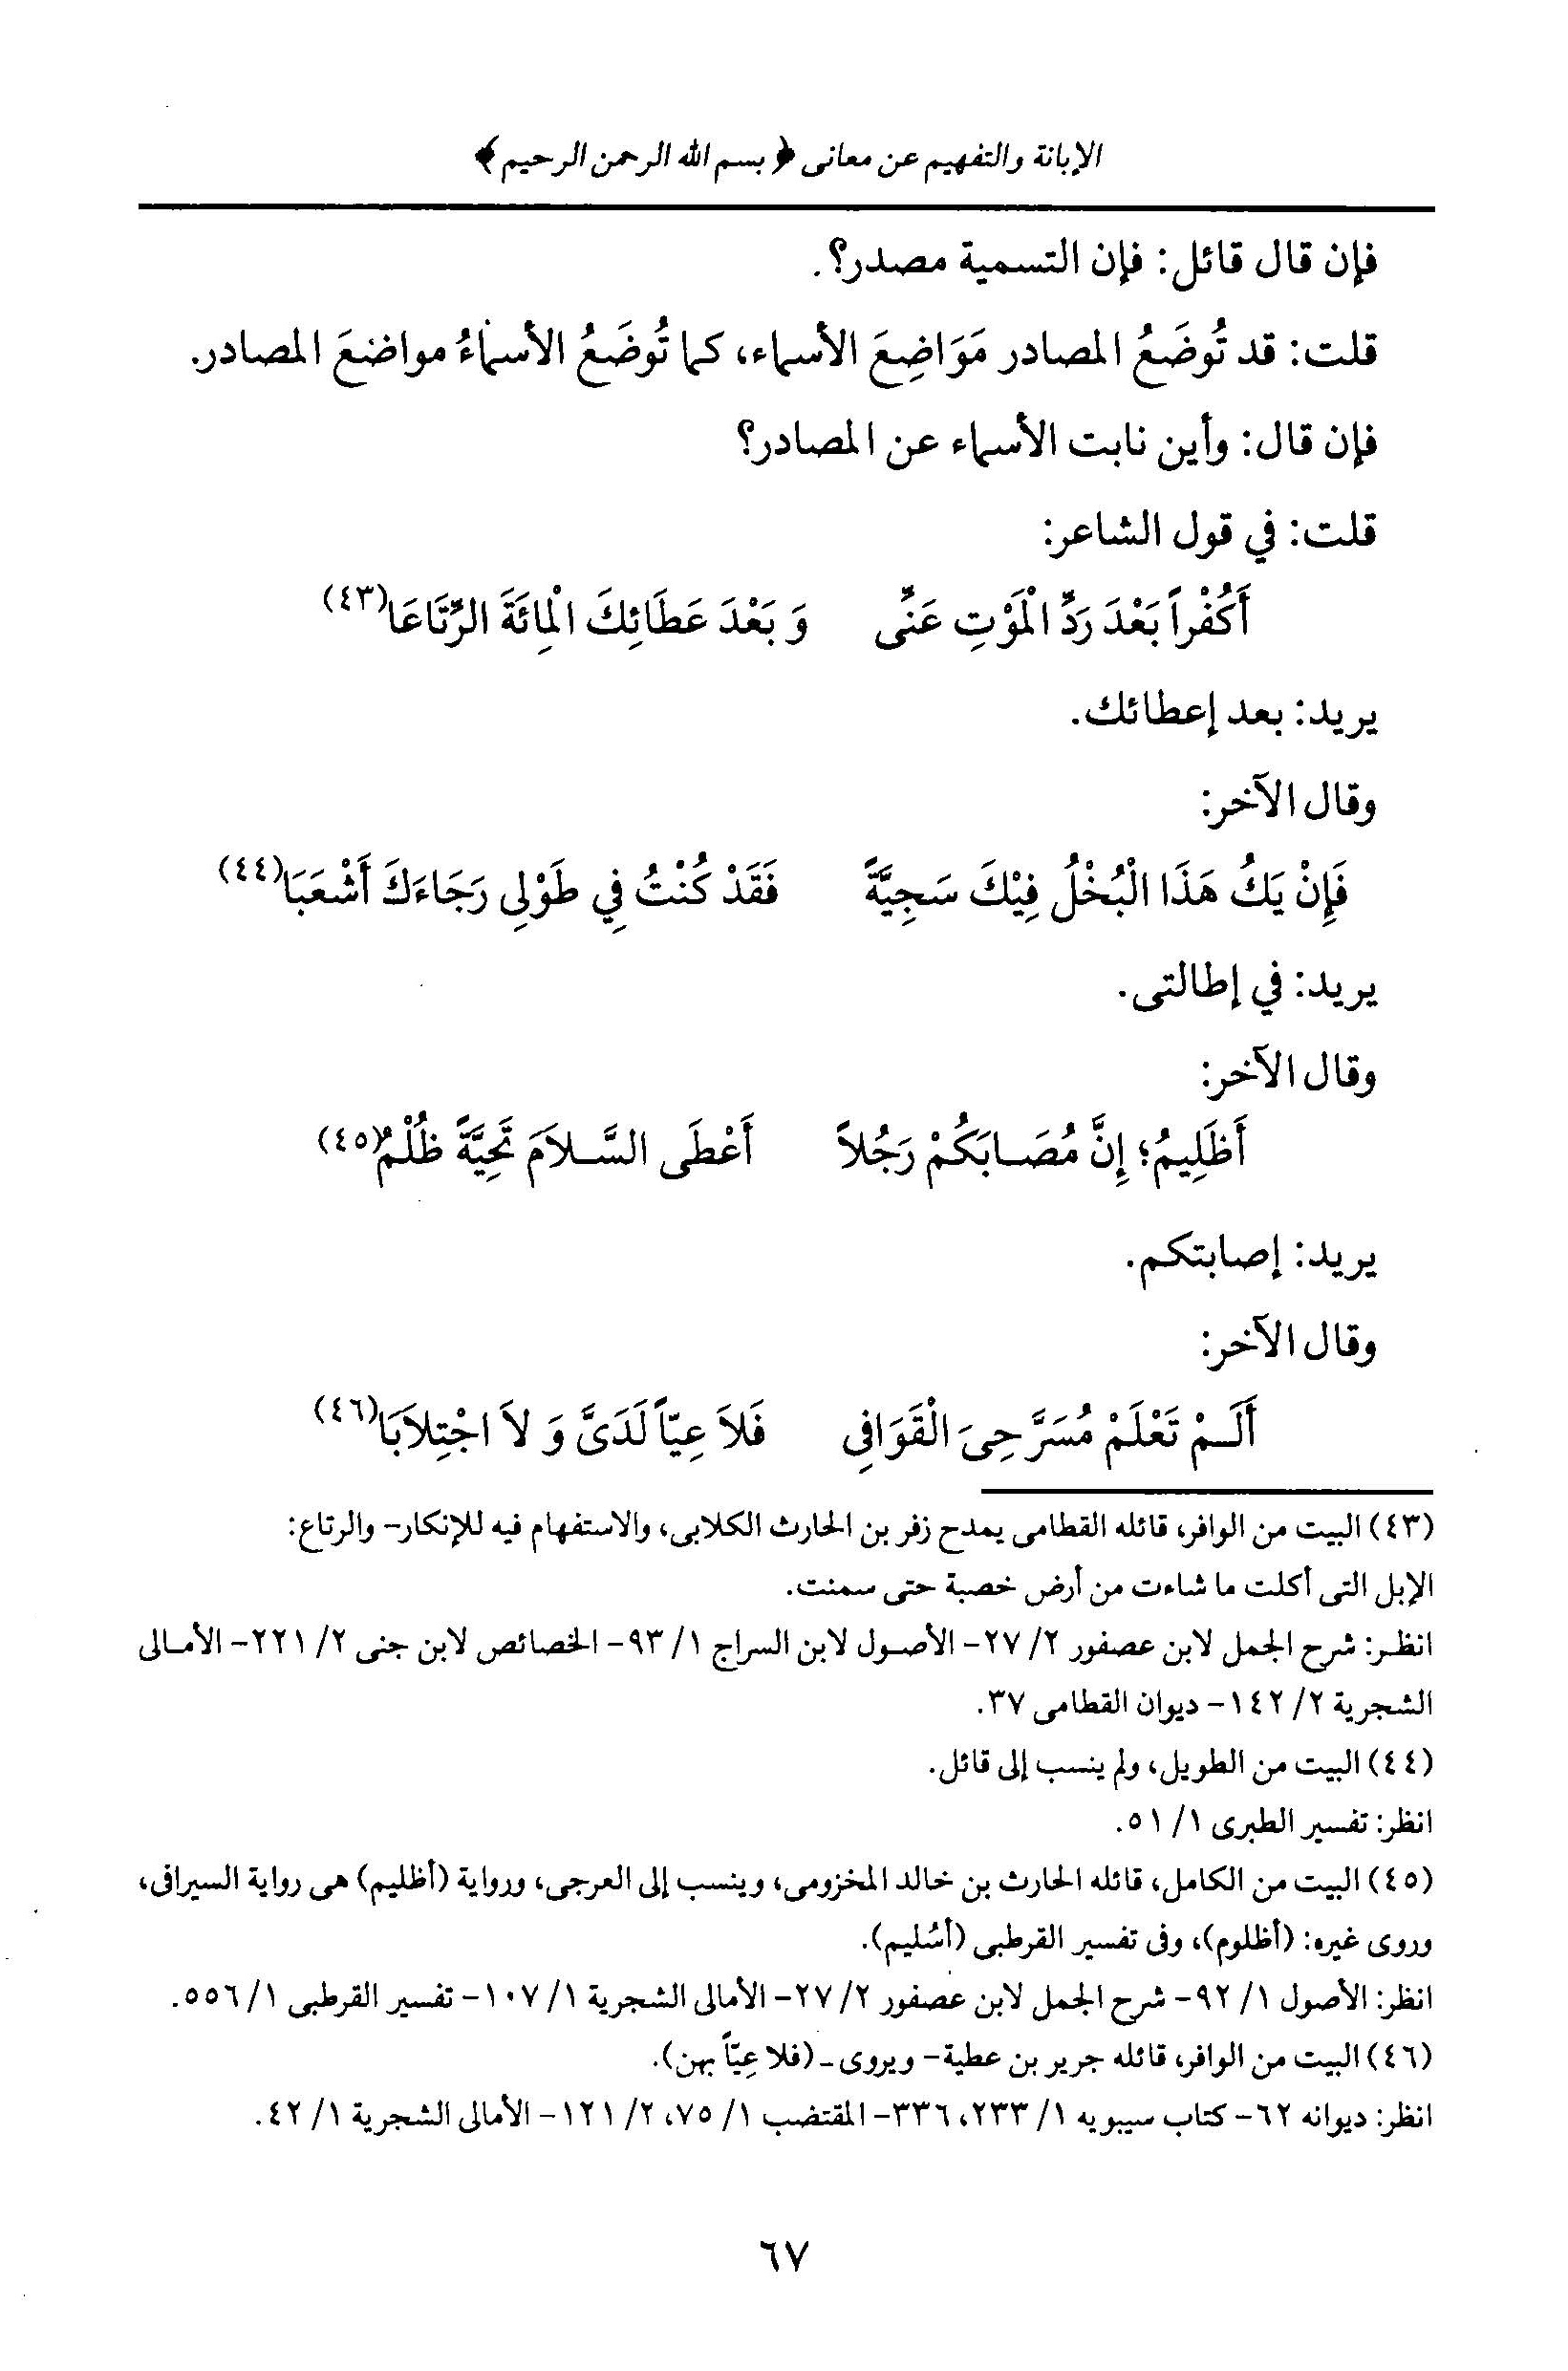 الإبانة والتفهيم عن معانى ﴿بسم الله الرحمن الرحيم﴾
فإن قال قائل: فإن التسمية مصدر؟.
قلت: قد تُوضَعُ المصادر مَوَاضِعَ الأسماء، كما تُوضَعُ الأسماءُ مواضعَ المصادر.
فإن قال: وأين نابت الأسماء عن المصادر؟
قلت: في قول الشاعر:
أَكُفْراً بَعْدَ رَدِّ الْمَوْتِ عَنِّى وَ بَعْدَ عَطَائِكَ الْمِائَةَ الرِّتَاعَا(٤٣)
يريد: بعد إعطائك.
وقال الآخر:
فَإِنْ يَكُ هَذَا الْبُخْلُ فِيْكَ سَجِيَّةً فَقَدْ كُنْتُ فِي طَوْلِى رَجَاءَكَ أَشْعَبَا(٤٤)
يريد: في إطالتى.
وقال الآخر:
أَظَلِيمُ؛ إِنَّ مُصَـابَكُمْ رَجُلاً أَعْطَى السَّـلاَمَ تَحِيَّةً ظُلْمُ(٤٥)
يريد: إصابتكم.
وقال الآخر:
أَلَـمْ تَعْلَمْ مُسَرَّحِىَ الْقَوَافِى فَلاَ عِيّاً لَدَىَّ وَ لاَ اجْتِلاَبَا(٤٦)
(٤٣) البيت من الوافر، قائله القطامى يمدح زفر بن الحارث الكلابى، والاستفهام فيه للإنكار- والرتاع:
الإبل التى أكلت ما شاءت من أرض خصبة حتى سمنت.
انظـر: شرح الجمل لابن عصفور ٢/ ٢٧- الأصـول لابن السراج ١/ ٩٣- الخصائص لابن جنى ٢/ ٢٢١- الأمـالى
الشجرية ٢/ ١٤٢- ديوان القطامى ٣٧.
(٤٤) البيت من الطويل، ولم ينسب إلى قائل.
انظر: تفسير الطبرى ١/ ٥١.
(٤٥) البيت من الكامل، قائله الحارث بن خالد المخزومى، وينسب إلى العرجى، ورواية (أظليم) هى رواية السيرافى،
وروى غيره: (أظلوم)، وفى تفسير القرطبى (أسُليم).
انظر: الأصول ١/ ٩٢- شرح الجمل لابن عصفور ٢/ ٢٧- الأمالى الشجرية ١/ ١٠٧- تفسير القرطبى ١/ ٥٥٦.
(٤٦) البيت من الوافر، قائله جرير بن عطية- ويروى- (فلا عِيّاً بهن).
انظر: ديوانه ٦٢- كتاب سيبويه ١/ ٢٣٣، ٣٣٦- المقتضب ١/ ٧٥، ٢/ ١٢١- الأمالى الشجرية ١/ ٤٢.
٦٧